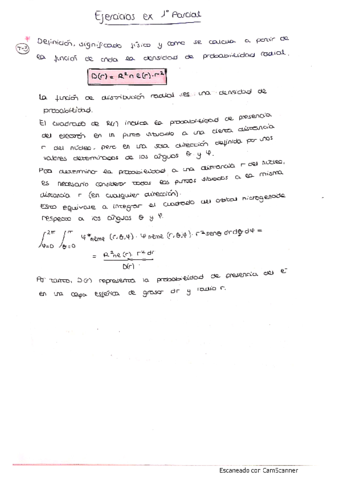 Ejercicios ex 1º Parcial
Definición, significado físico y como se calcula a partir de
la función de onda la densidad de probabilidad radial.
D(r) = R²nℓ(r)·r²
La función de distribución radial es una densidad de
probabilidad.
El cuadrado de R(r) indica la probabilidad de presencia
del electrón en un punto situado a una cierta distancia
r del núcleo, pero en una sola dirección definida por unos
valores determinados de los ángulos θ y φ.
Para determinar la probabilidad a una distancia r del núcleo,
es necesario considerar todos los puntos situados a la misma
distancia r (en cualquier dirección)
Esto equivale a integrar el cuadrado del orbital
respecto a los ángulos θ y φ
∫φ=0 2π ∫θ=0 π Ψ*nℓmℓ (r,θ,φ)·Ψnℓmℓ (r,θ,φ)·r² senθ dr dθ dφ =
= R²nℓ(r)·r² dr
D(r)
Por tanto, D(r) representa la probabilidad de presencia del e⁻
en una capa esférica de grosor dr y radio r.
Escaneado con CamScanner